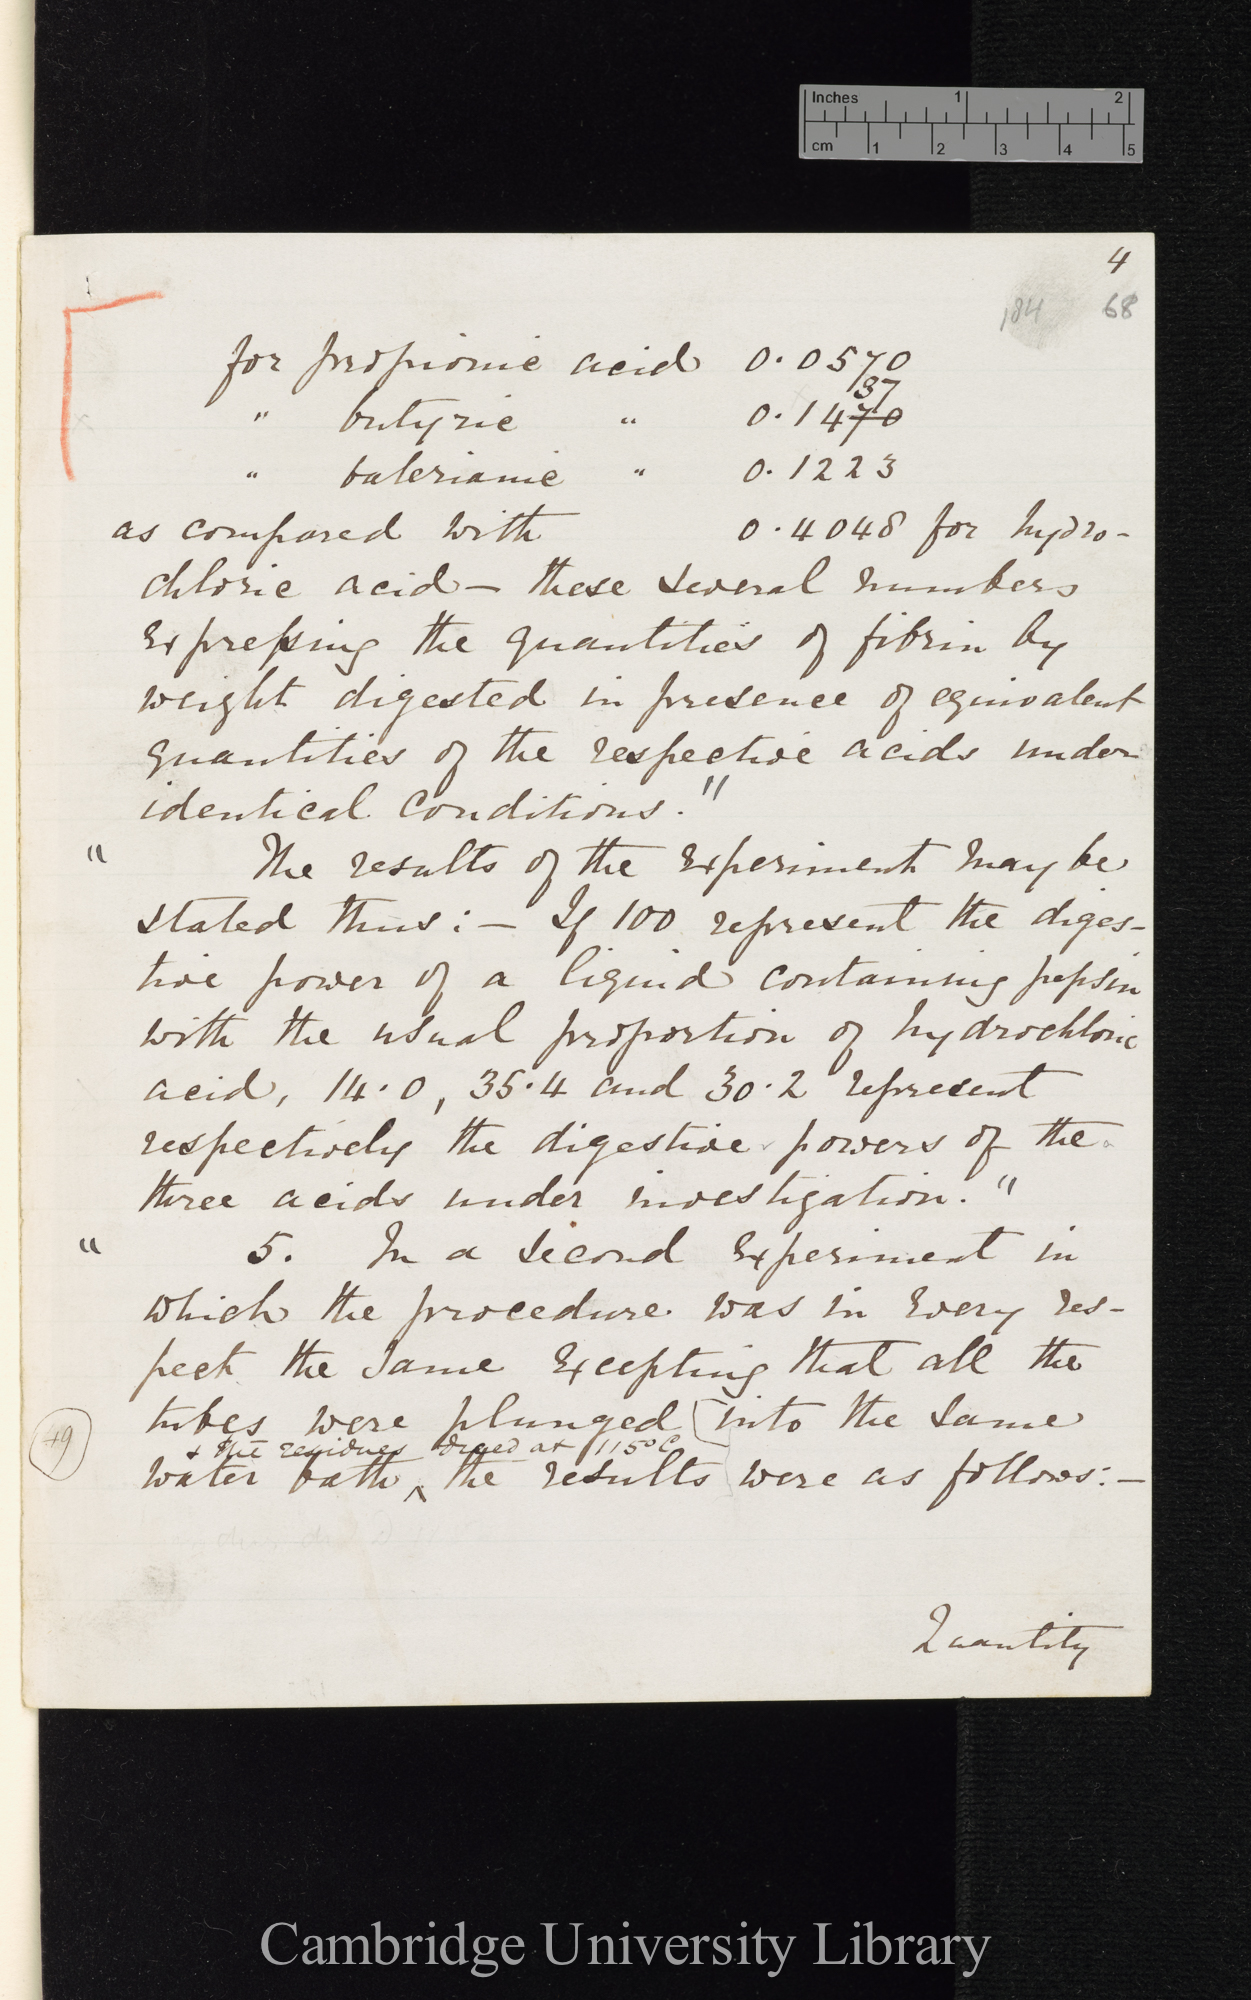 Inches 1 2
cm 1 2 3 4 5
4
184 68
for propionic acid 0.0570
37
" butyric " 0.1470
" valerianic " 0.1223
as compared with 0.4048 for hydro-
chloric acid — these several numbers
expressing the quantities of fibrin by
weight digested in presence of equivalent
quantities of the respective acids under
identical conditions."
" The results of the experiment may be
stated thus: — If 100 represent the diges-
tive power of a liquid containing pepsin
with the usual proportion of hydrochloric
acid, 14.0, 35.4 and 30.2 represent
respectively the digestive powers of the
three acids under investigation."
" 5. In a second experiment in
which the procedure was in every res-
pect the same excepting that all the
tubes were plunged into the same
+ the residues dried at 115° C
water bath ^ the results were as follows: —
49
Quantity
Cambridge University Library